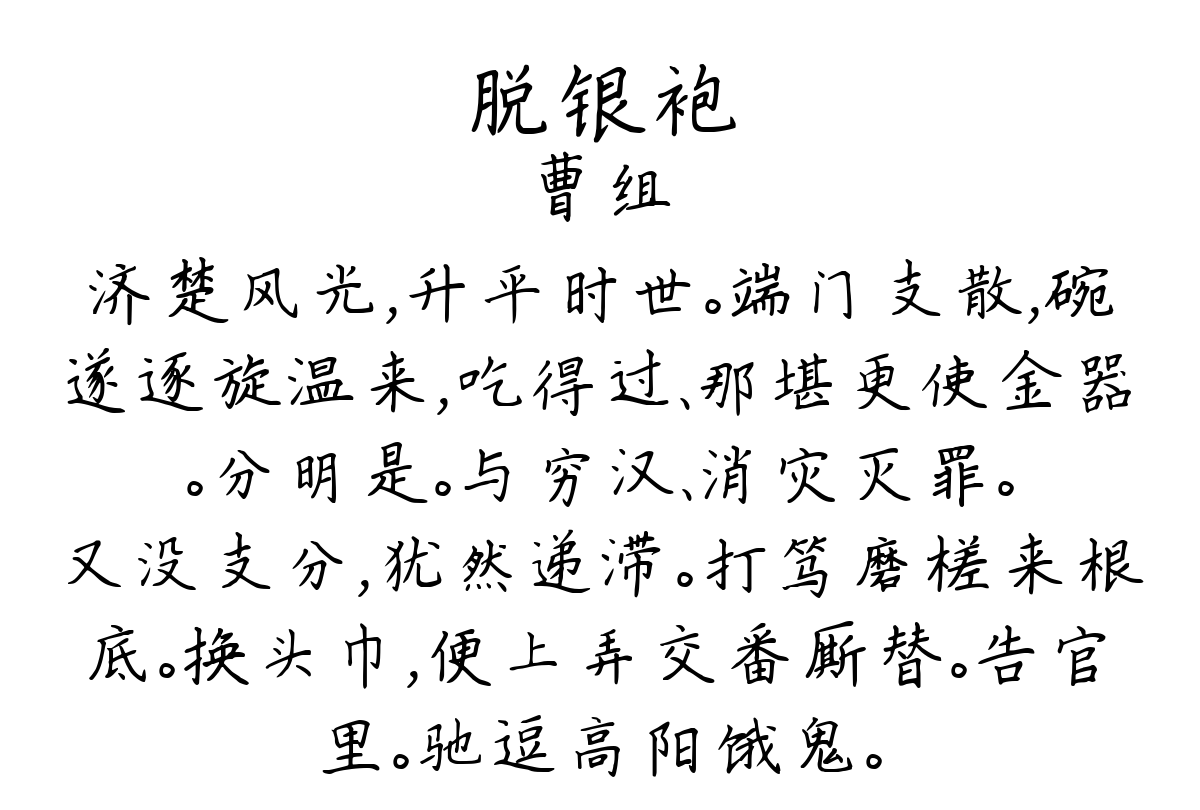 脱银袍
曹组
济楚风光,升平时世。端门支散,碗
遂逐旋温来,吃得过、那堪更使金器
。分明是。与穷汉、消灾灭罪。
又没支分,犹然递滞。打笃磨槎来根
底。换头巾,便上弄交番厮替。告官
里。驰逗高阳饿鬼。